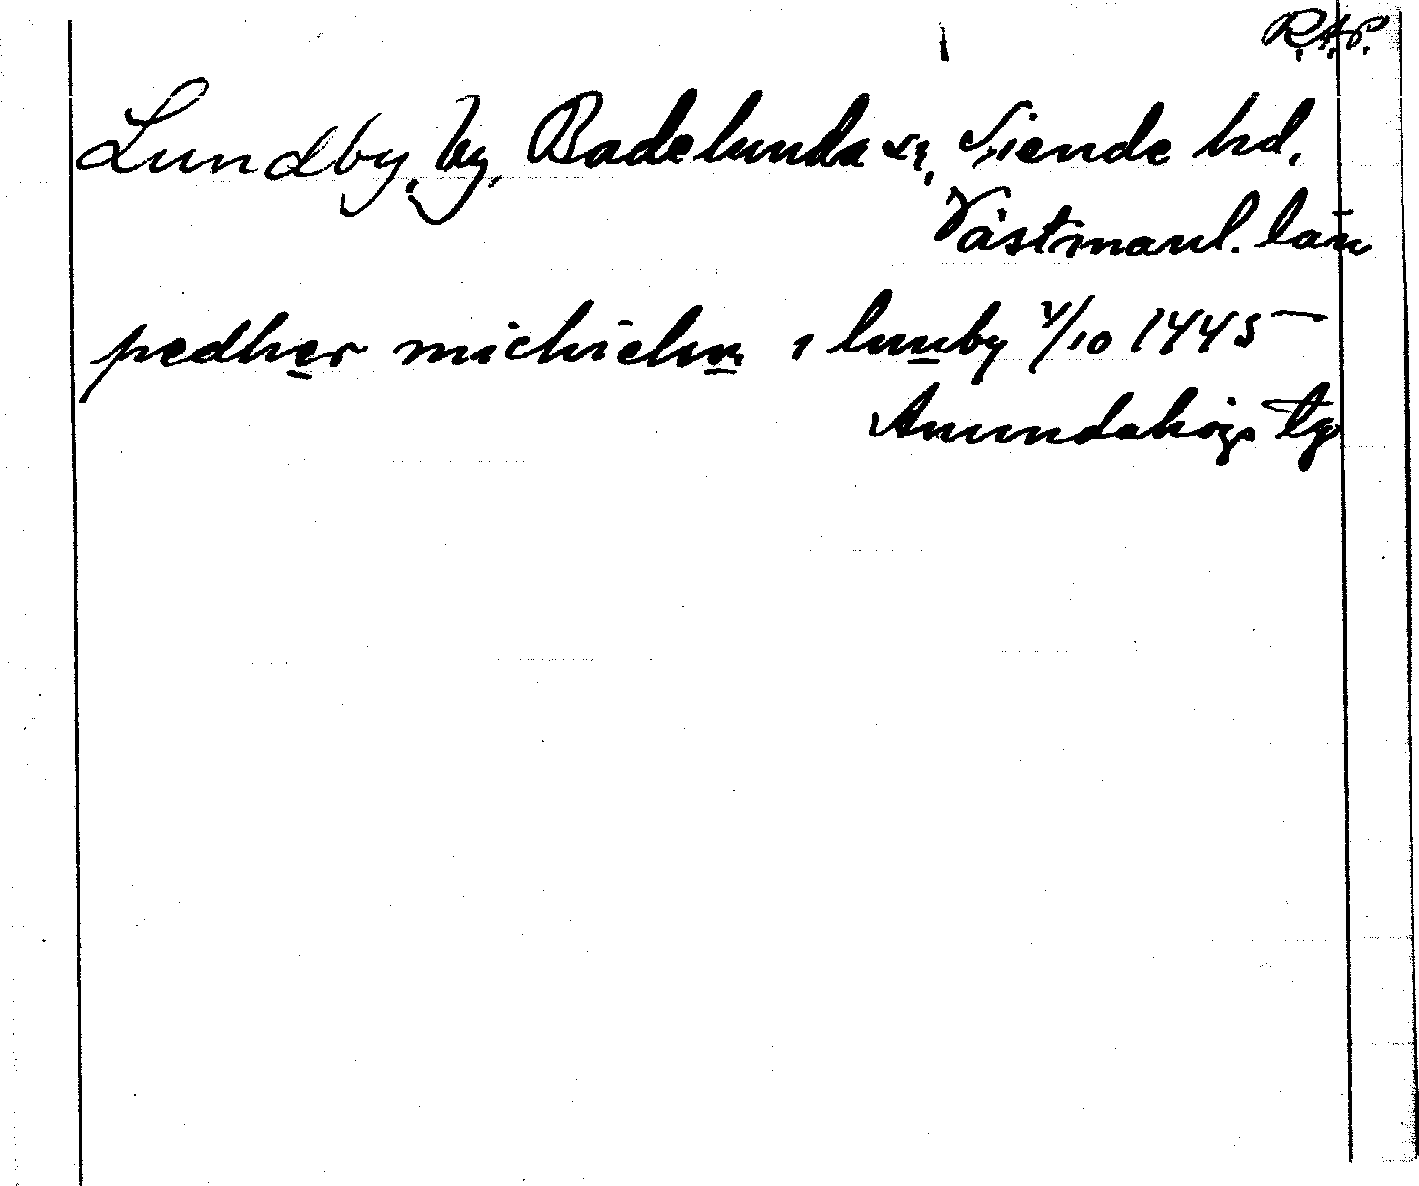 R.A.P.
Lundby, by, Badelunda sn, Siende hd,
Västmanl. län
pedher michielsn i lunby 4/10 1445
Anundahögs tg